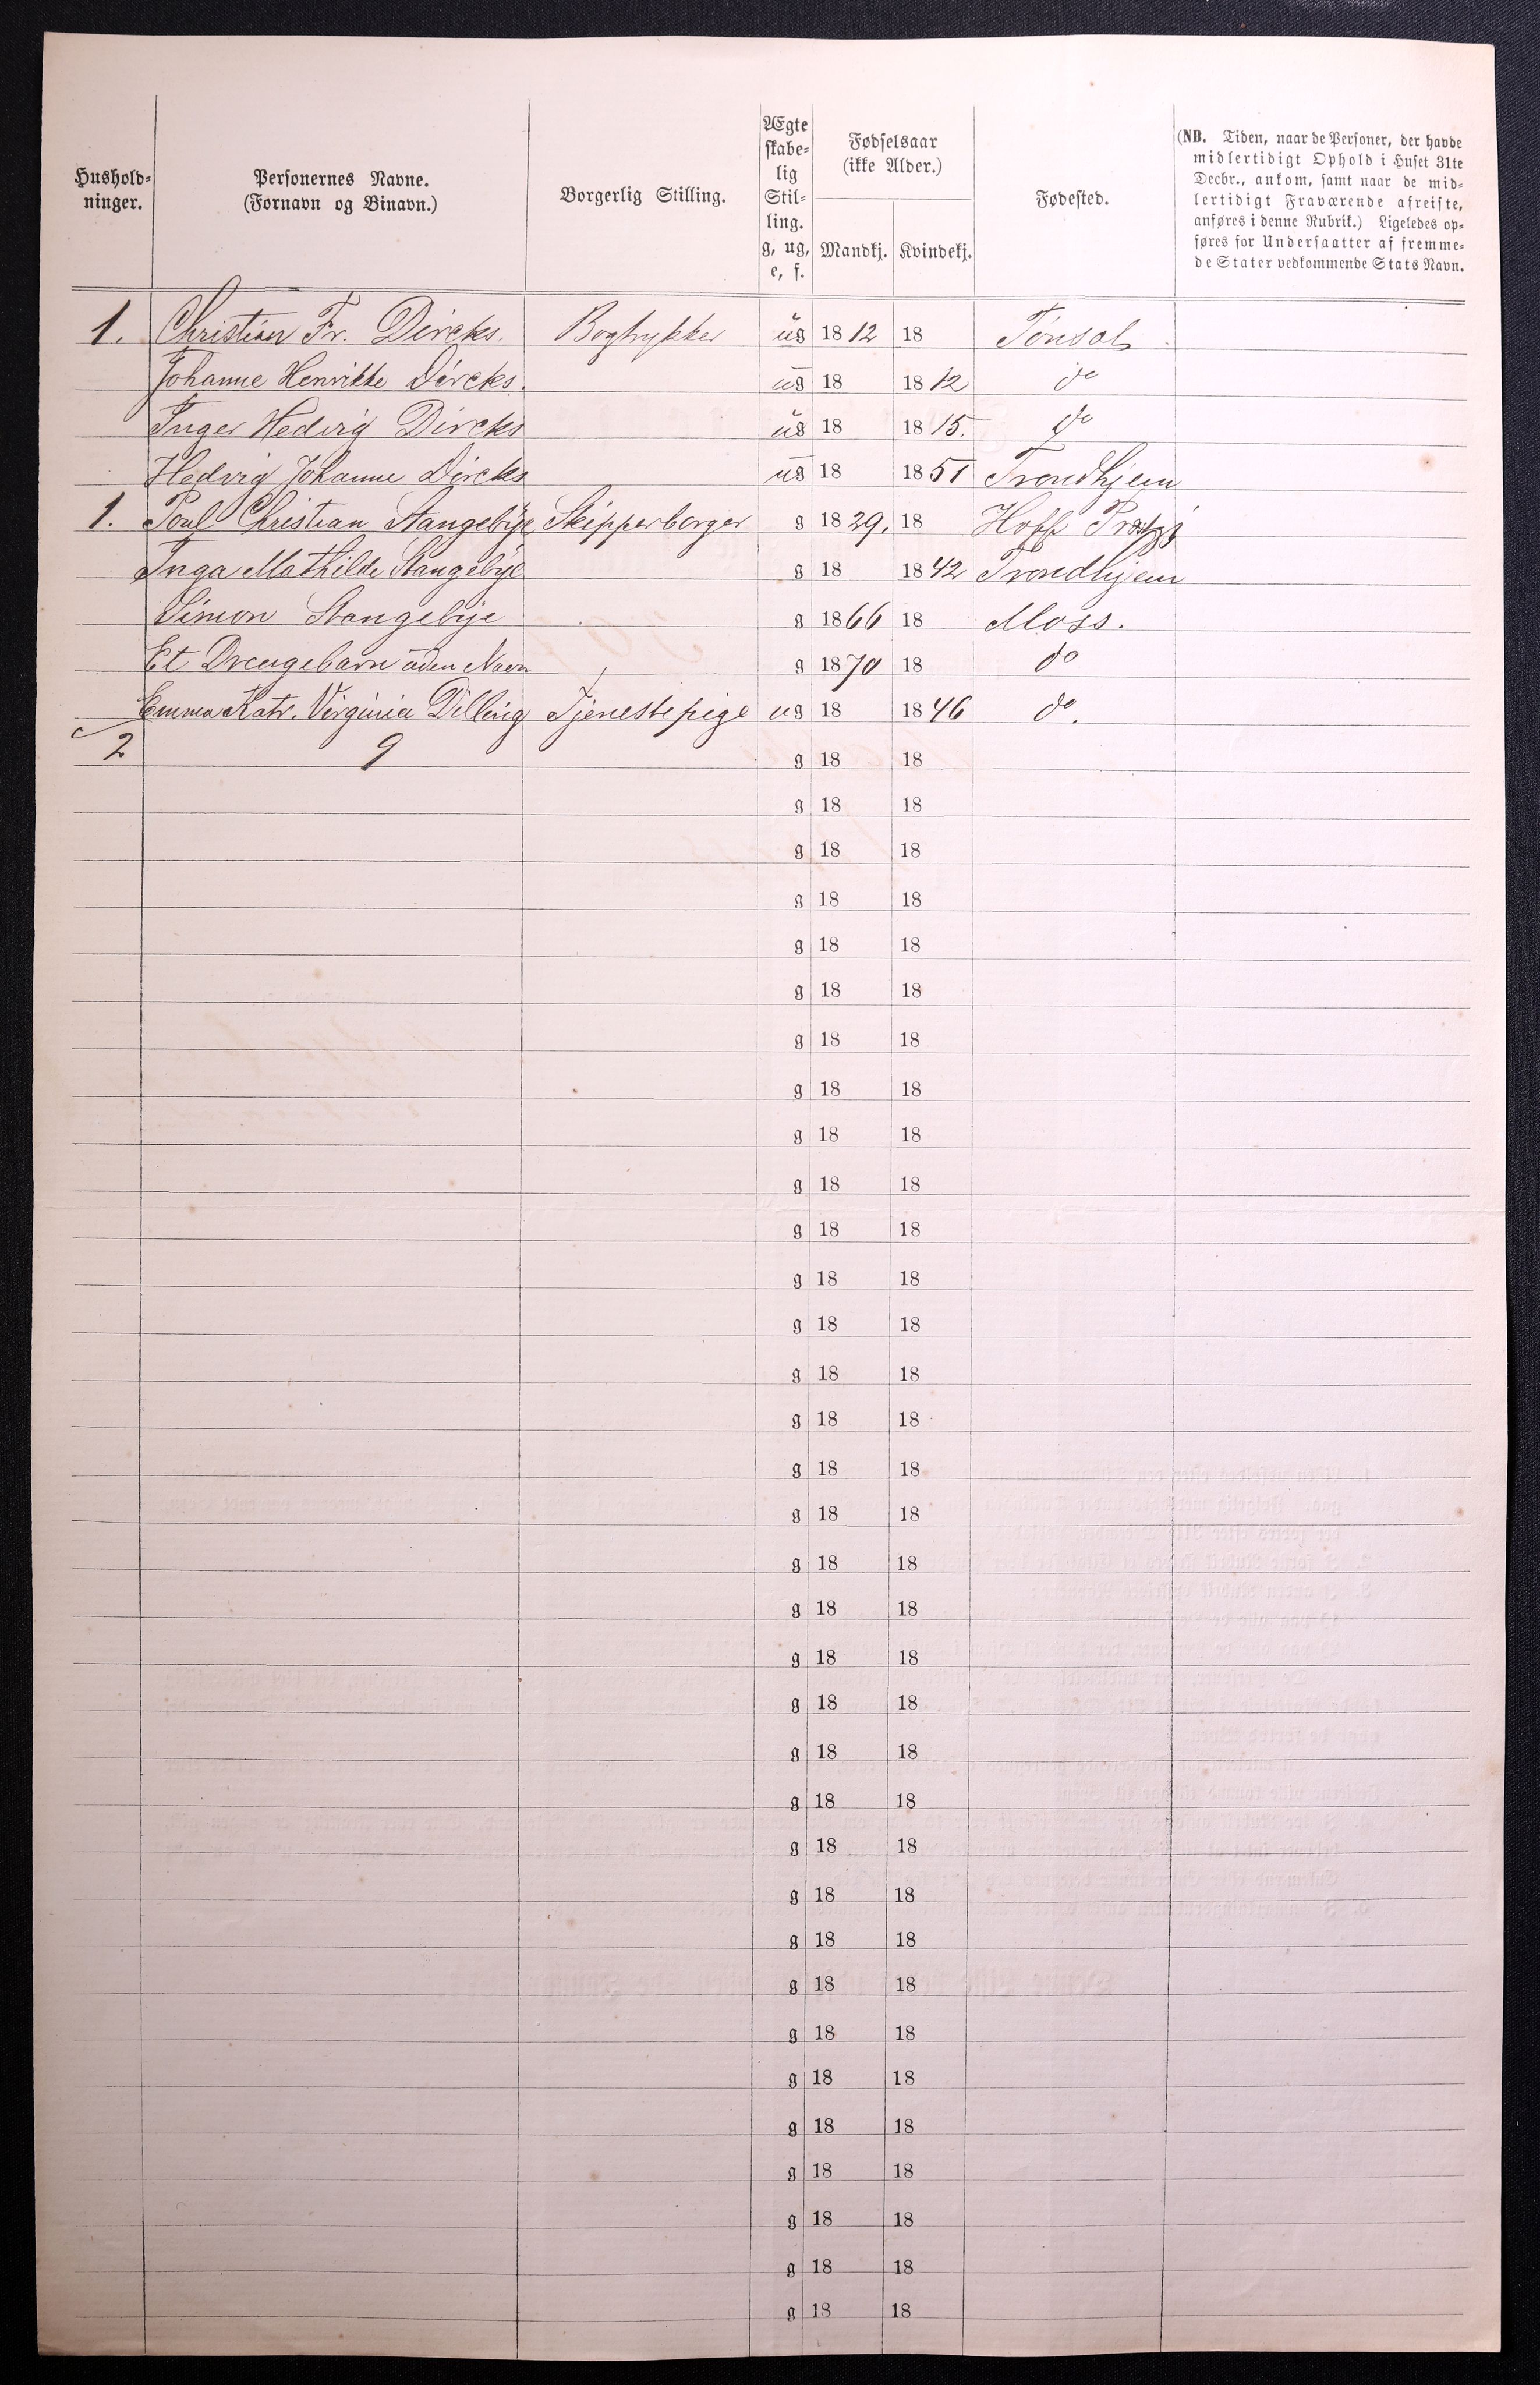 Hushold-
ninger.
Personernes Navne.
(Fornavn og Binavn.)
Borgerlig Stilling.
Ægte
skabe-
lig
Stil-
ling.
g, ug,
e, f.
Fødselsaar
(ikke Alder.)
Mandkj. Kvindekj.
Fødested.
(NB. Tiden, naar de Personer, der havde
midlertidigt Ophold i Huset 31te
Decbr., ankom, samt naar de mid-
lertidigt Fraværende afreiste,
anføres i denne Rubrik.) Ligeledes op-
føres for Undersaatter af fremme-
de Stater vedkommende Stats Navn.
1. Christian Fr. Dircks. Bogtrykker ug 1812 18 Tønsb
Johanne Henrikke Dircks. ug 18 1812 do
Inger Hedvig Dircks ug 18 1815. do
Hedvig Johanne Dircks ug 18 1851 Trondhjem
1. Poul Christian Stangebye Skipperborger g 1829. 18 Hoff Prstgj
Inga Mathilde Stangebye g 18 1842 Trondhjem
Simon Stangebye g 1866 18 Moss.
Et Drengebarn uden Navn g 1870 18 do
Emma Katr. Virginia Dilling Tjenestepige ug 18 1846 do.
2 9 g 18 18
g 18 18
g 18 18
g 18 18
g 18 18
g 18 18
g 18 18
g 18 18
g 18 18
g 18 18
g 18 18
g 18 18
g 18 18
g 18 18
g 18 18
g 18 18
g 18 18
g 18 18
g 18 18
g 18 18
g 18 18
g 18 18
g 18 18
g 18 18
g 18 18
g 18 18
g 18 18
g 18 18
g 18 18
g 18 18
g 18 18
g 18 18
g 18 18
g 18 18